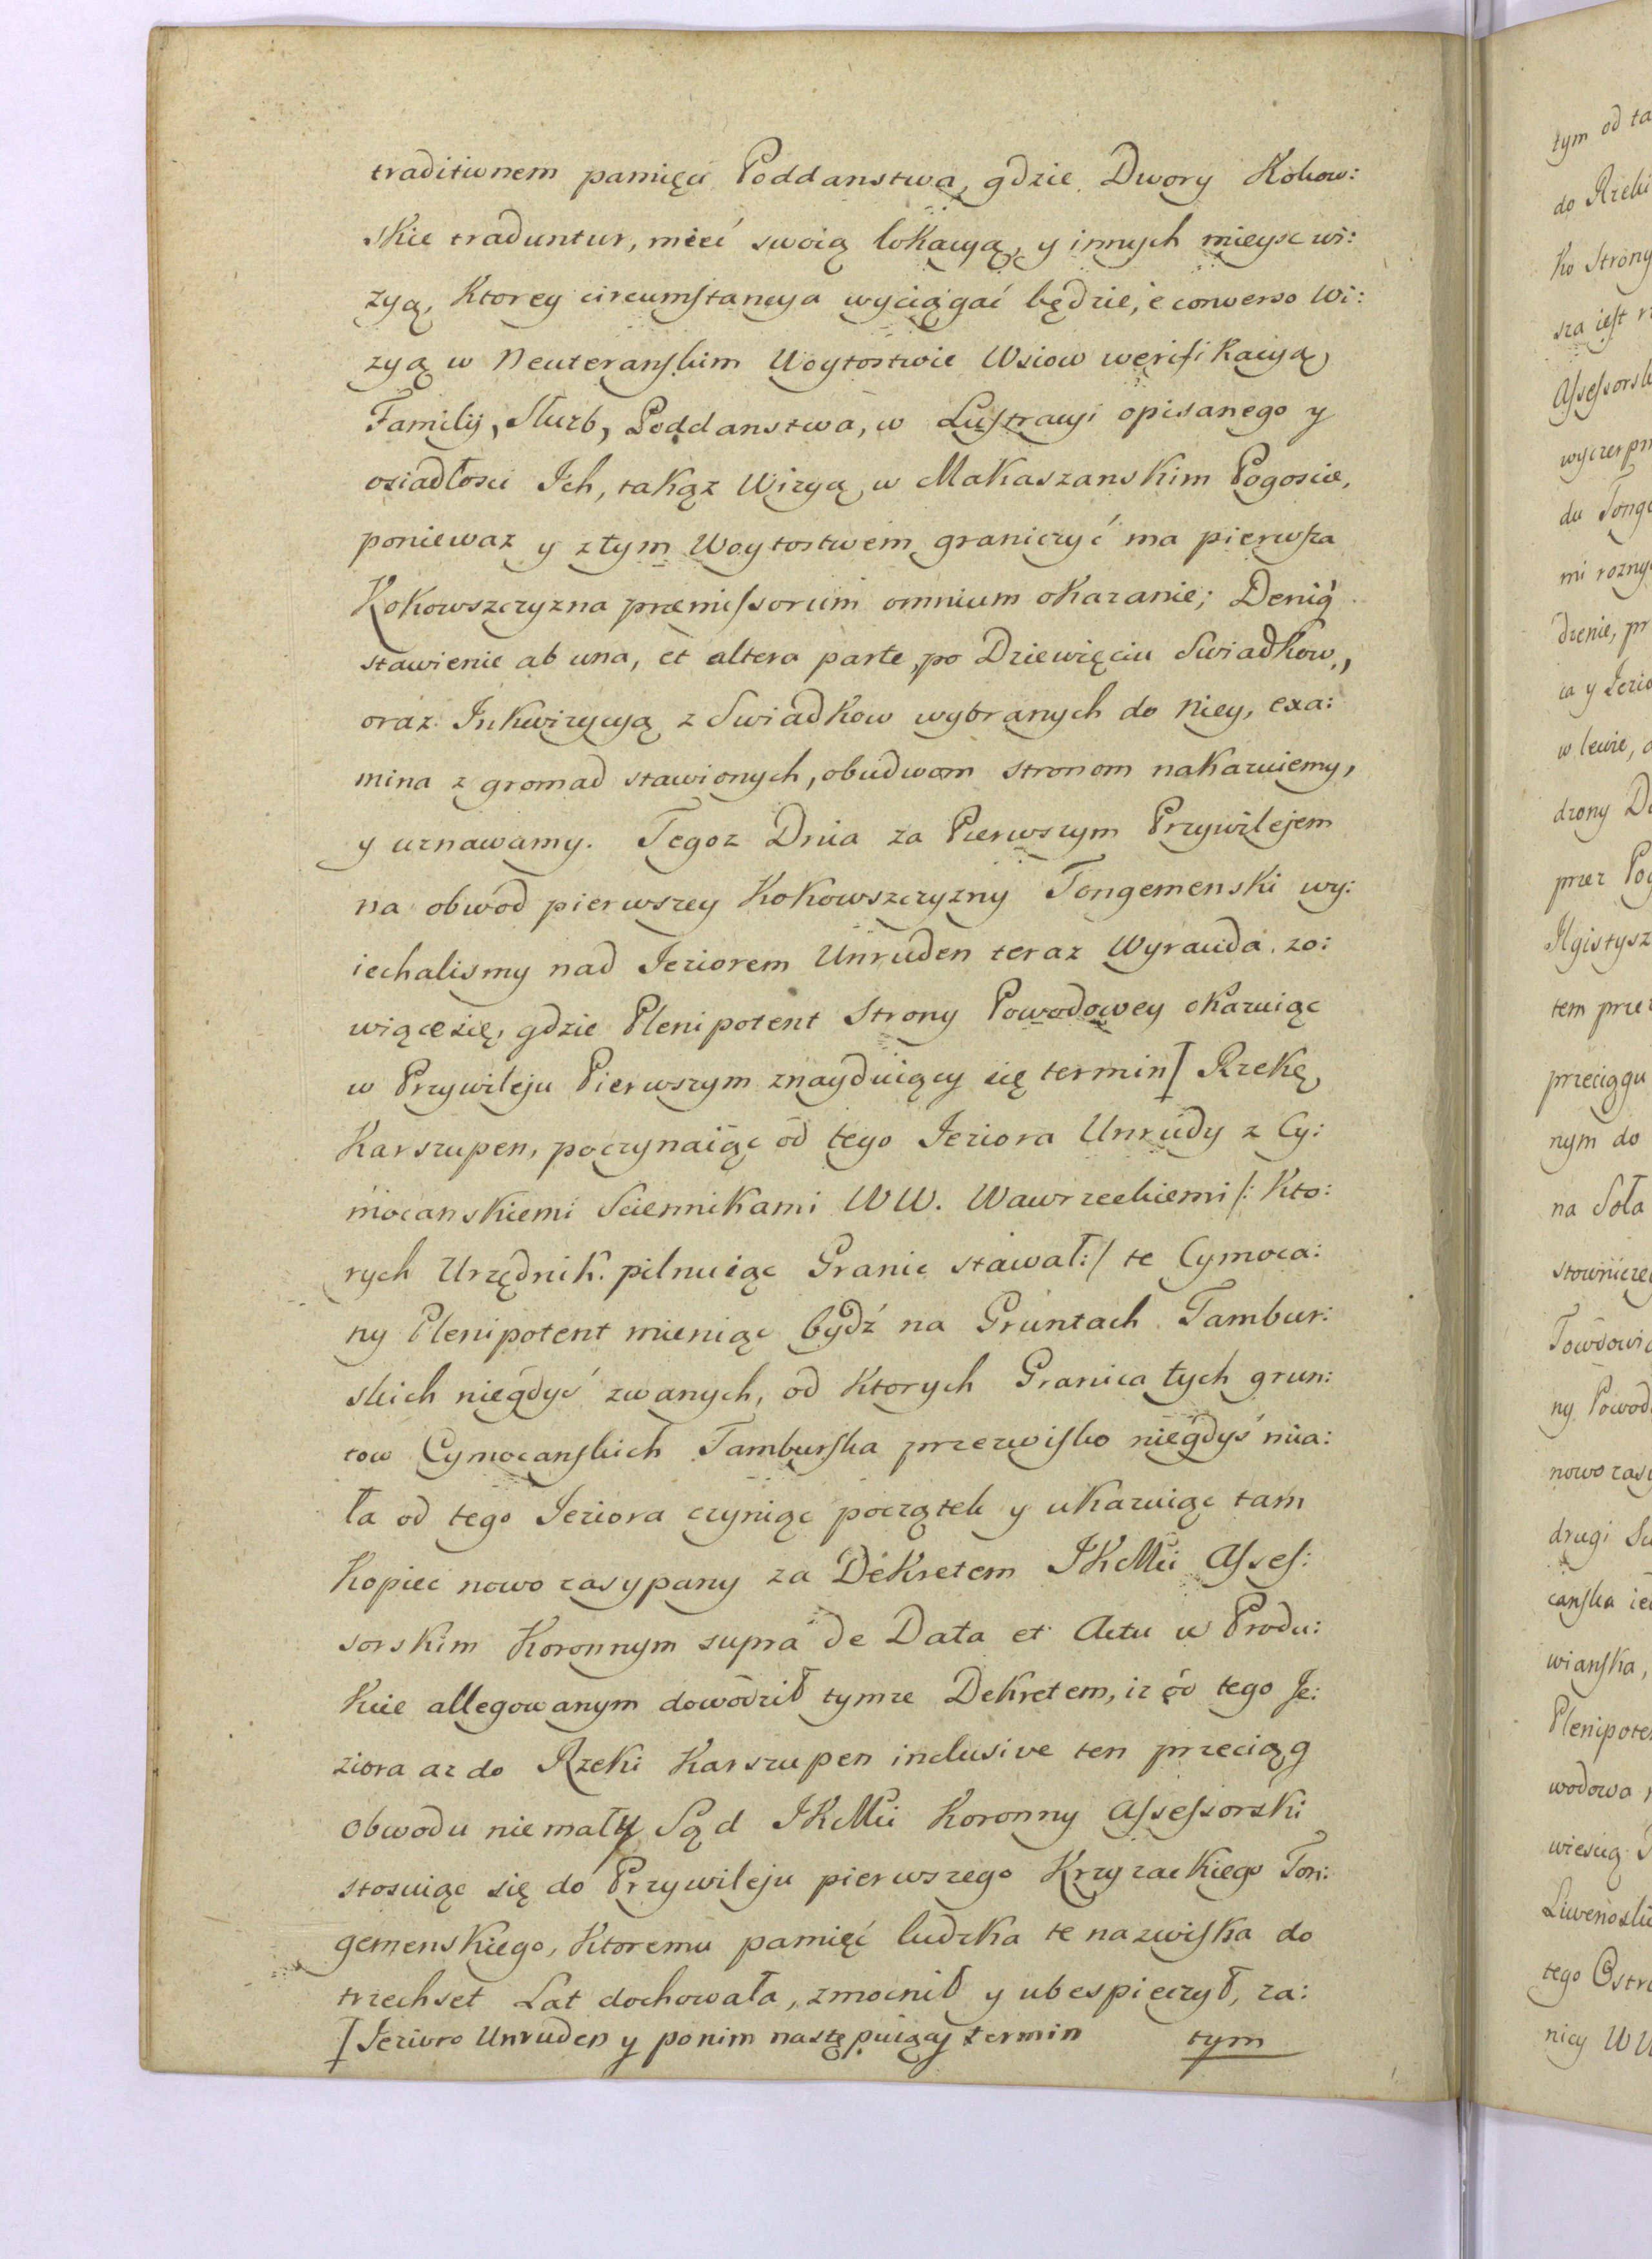 traditionem pamięci Poddanstwa, gdzie Dwory Kokow:
skie traduntur, mieć swoią lokacyą, y innych mieysc wi:
zyą, Ktorey circumstancya wyciągać będzie, e converso Wi:
zyą w Neuteranskim Woytostwie Wsiow weryfikacyą,
Familij, Służb, Poddanstwa, w Lustracyi opisanego y
osiadłosci Ich, takąz Wizyą w Makaszanskim Pogoscie,
poniewaz y z tym Woytostwem graniczyć ma pierwsza
Kokowszczyzna præmissorum omnium okazanie; Deniq
stawienie ab una, et altera parte, po Dziewięciu Swiadkow,
oraz Inkwizycyą z Swiadkow wybranych do Niey, exa:
mina z gromad stawionych, obudwom stronom nakazuiemy,
y uznawamy. Tegoz Dnia za Pierwszym Przywilejem
na obwod pierwszey Kokowszczyzny Tongemenski wy:
iechalismy nad Jeziorem Unruden teraz Wyrauda zo:
wiące się, gdzie Plenipotent Strony Powodowey okazuiąc
w Przywileju Pierwszym znayduiący się termin [ Rzekę
Karszupen, poczynaiąc od tego Jeziora Unrudy z Cy:
mocanskiemi Sciennikami WW. Wawrzeckiemi /: Kto:
rych Urzędnik pilnuiąc Granic stawał :/ te Cymoca:
ny Plenipotent mieniąc bydź na Gruntach Tambur:
skich niegdyś zwanych, od Ktorych Granica tych grun:
tow Cymocanskich Tamburska przezwisko niegdyś mia:
ła od tego Jeziora czyniąc początek y ukazuiąc tam
Kopiec nowo zasypany za Dekretem JKMci Asses:
sorskim Koronnym supra de Data et Actu w Produ:
kcie allegowanym dowodził tymze Dekretem, iz od tego Je:
ziora az do Rzeki Karszupen inclusive ten przeciąg
obwodu niemały Sąd JKMci Koronny Assessorski
stosuiąc się do Przywileju pierwszego Krzyzackiego Ton:
gemenskiego, Ktoremu pamięć ludzka te nazwiska do
trzechset Lat dochowała, zmocnił y ubespieczył, za:
[ Jezioro Unruden y ponim następuiący termin tym
tym od ta
do Rzeki
ko Strony
sza iest
Assessorsk
wyczerpn
du Tonge
mi rozny
dzenie, pr
ca y Jezio
w lewie,
dzony
przez Pog
Ilgistysz
tem prze
przeciągu
nym do
na Soła
stowniczę
ny Powod
nowo zasy
drugi
canska ie
wianska,
Plenipote
wodowa
tego Ostro
nicy